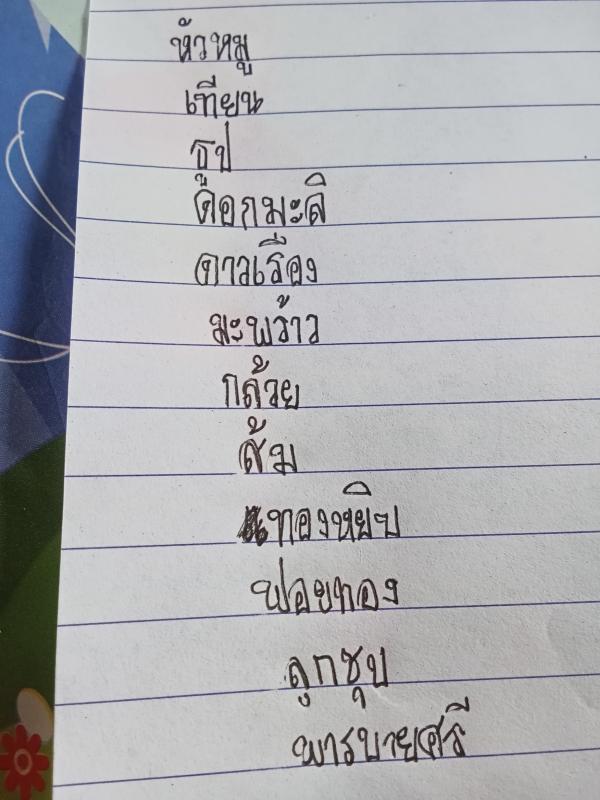 หัวหมู
เทียน
ธูป
ดอกมะลิ
ดาวเรือง
มะพร้าว
กล้วย
ส้ม
ทองหยิบ
ฝอยทอง
ลูกชุบ
พารบายศรี